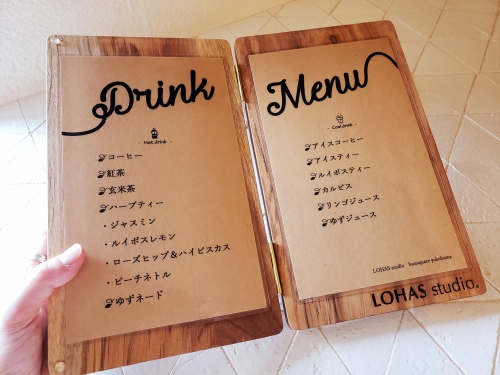 Drink
- Hot drink -
コーヒー
紅茶
玄米茶
ハーブティー
・ジャスミン
・ルイボスレモン
・ローズヒップ&ハイビスカス
・ピーチネトル
ゆずネード
Menu
- Cool drink -
アイスコーヒー
アイスティー
ルイボスティー
カルピス
リンゴジュース
ゆずジュース
LOHAS studio
LOHAS studio.